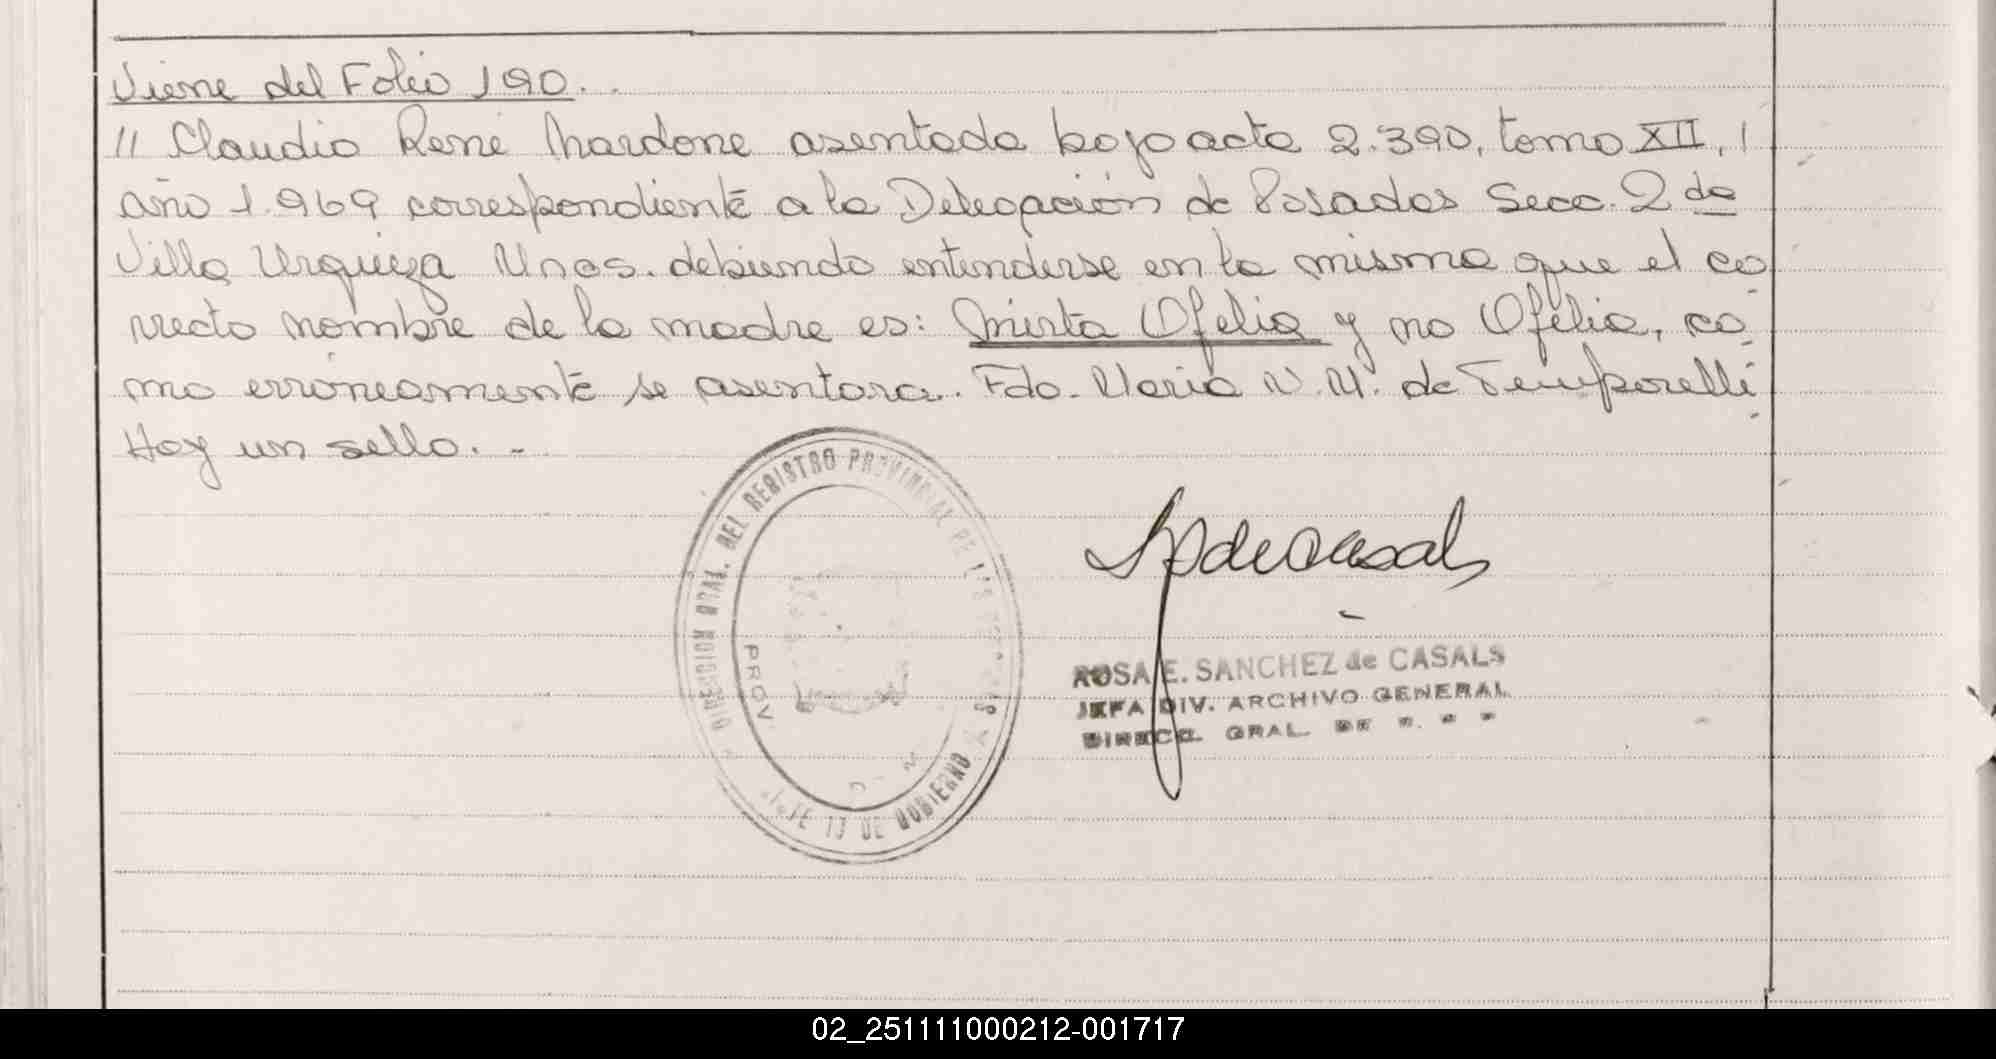 Viene del Folio 190. .
// Claudio René Mardone asentada bajo acta 2.390, tomo XII, /
año 1.969 correspondiente a la Delegación de Posadas Secc. 2 da
Villa Urquiza Mnes. debiendo entenderse en la misma que el co
rrecto nombre de la madre es: Mirta Ofelia y no Ofelia, co
mo erróneamente se asentara. Fdo. Maria N. M. de Temporelli
Hay un sello. -
DIRECCION GRAL. DEL REGISTRO PROVINCIAL DE LAS PERSONAS
PROV.
DE GOBIERNO
SdeCasals
ROSA E. SANCHEZ de CASALS
JEFA DIV. ARCHIVO GENERAL
DIRECC. GRAL. DE
02_251111000212-001717